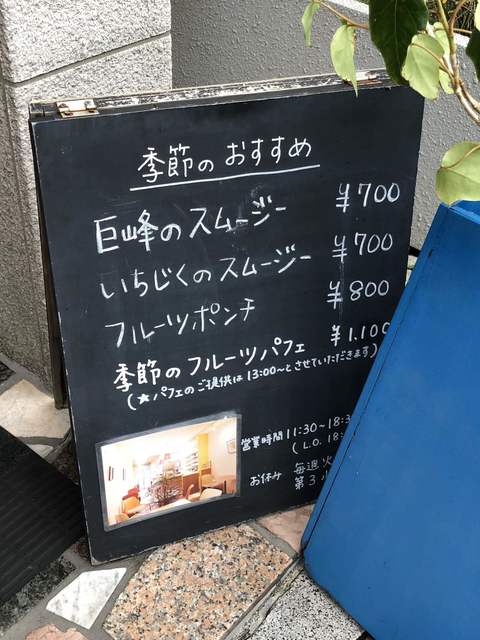 季節のおすすめ
巨峰のスムージー ¥700
いちじくのスムージー ¥700
フルーツポンチ ¥800
季節のフルーツパフェ ¥1.100
(★パフェのご提供は13:00〜とさせていただきます)
営業時間 11:30〜18:3
(L.O. 18:
お休み 毎週火
第3